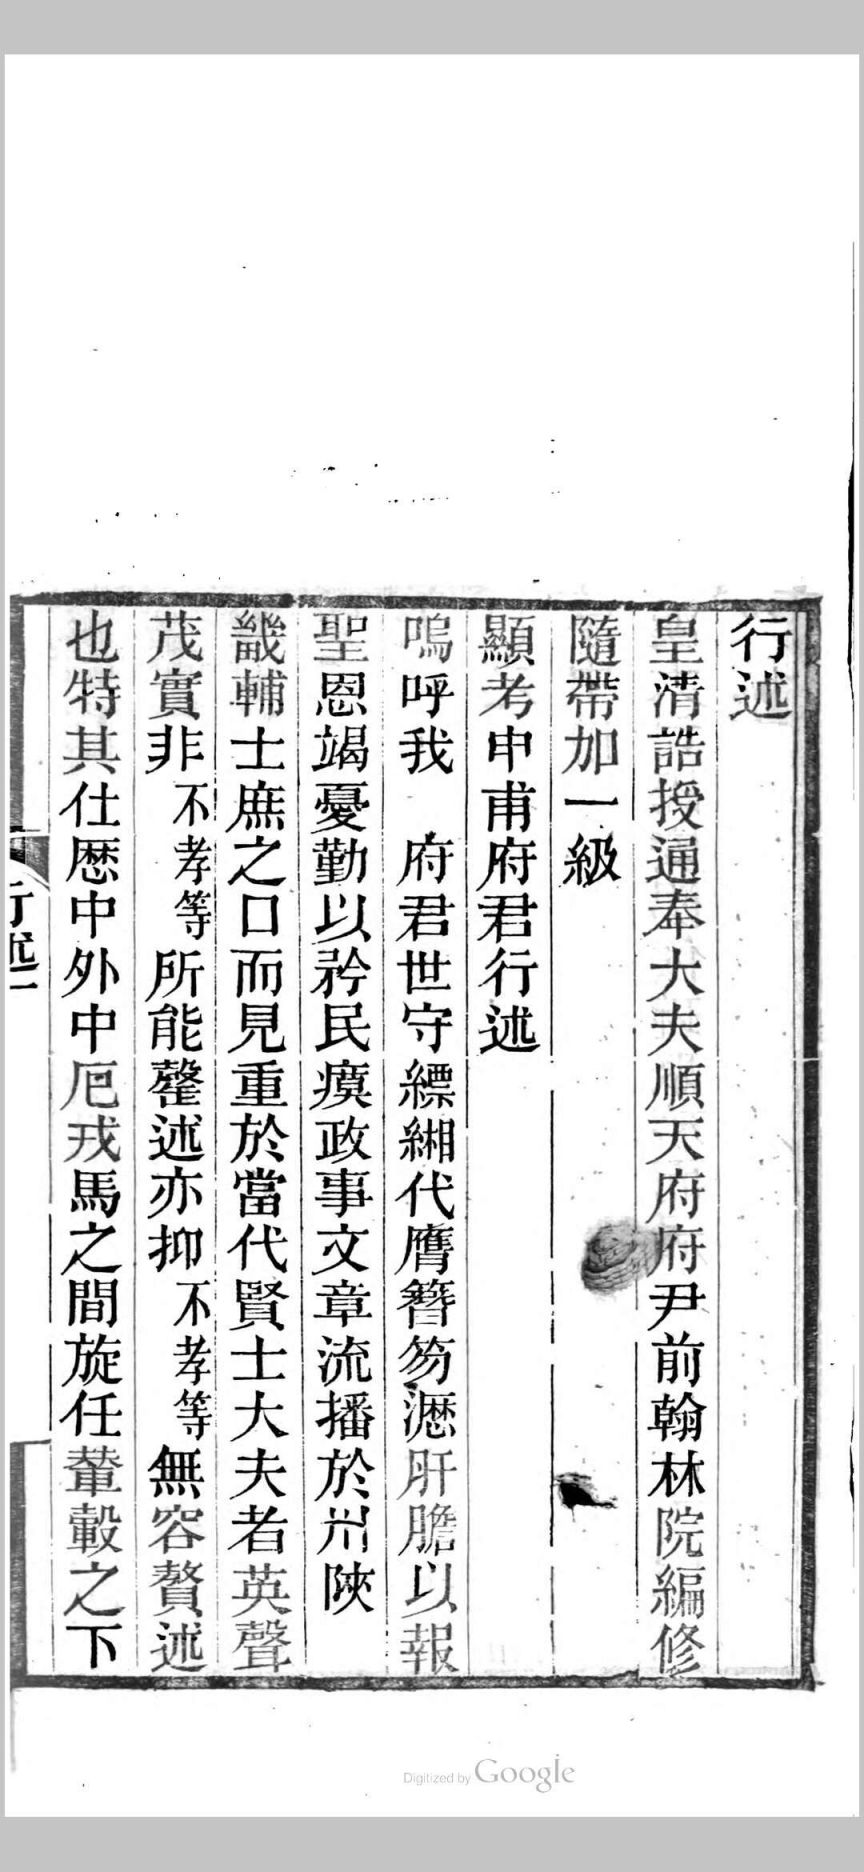 行述
皇清誥授通奉大夫順天府府尹前翰林院編修
隨帶加一級
顯考申甫府君行述
嗚呼我　府君世守縹緗代膺簪笏瀝肝膽以報
聖恩竭憂勤以矜民瘼政事文章流播於州陜
畿輔士庶之口而見重於當代賢士大夫者英聲
茂實非不孝等所能罄述亦抑不孝等無容贅述
也特其仕歷中外中厄戎馬之間旋任輦轂之下
行述一
Digitized by Google